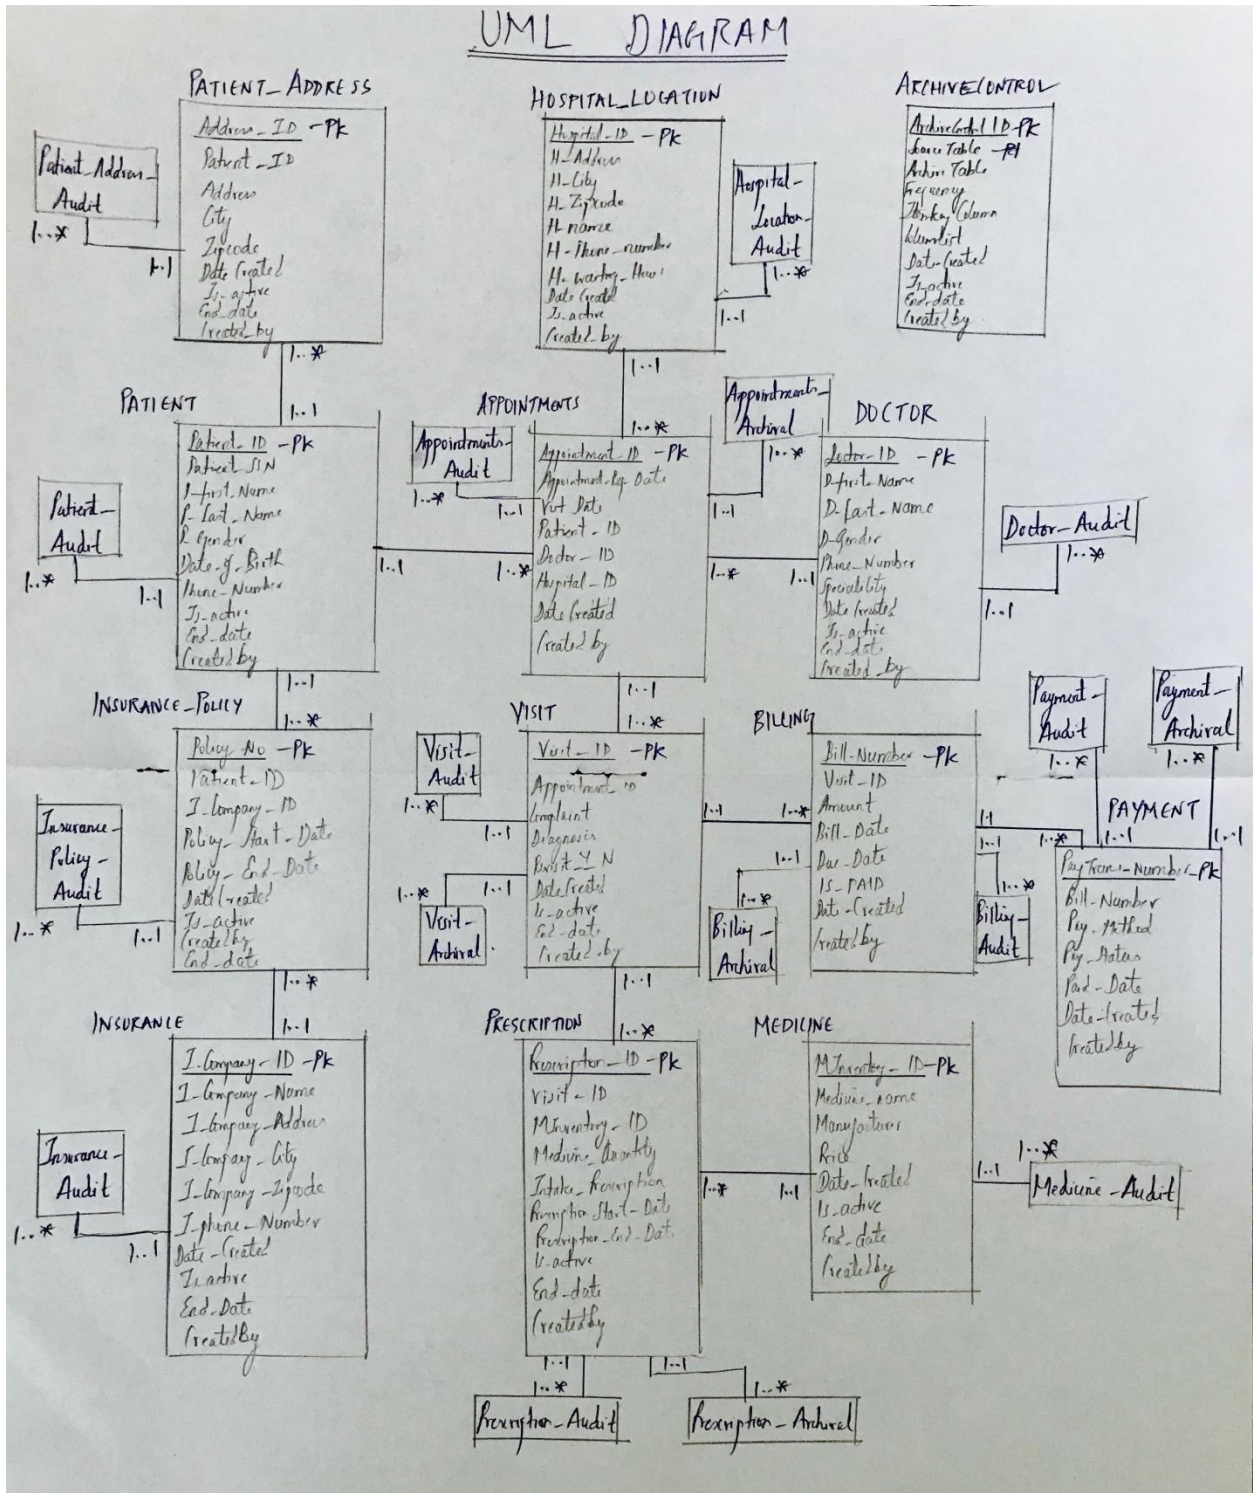 UML DIAGRAM
PATIENT_ADDRESS
Address_ID -PK
Patient_ID
Address
City
Zipcode
Date Created
Is_active
End_date
Created_by
Patient_Address_
Audit
1..*
1..1
HOSPITAL_LOCATION
Hospital_ID -PK
H_Address
H_City
H_Zipcode
H_name
H_Phone_number
H_working_Hours
Date Created
Is_active
Created_by
Hospital_
Location_
Audit
1..*
1..1
ARCHIVECONTROL
ArchiveControl ID-PK
Source Table
Archive Table
Frequency
Column
Date_Created
Is_active
End_date
Created by
1..*
1..1
1..1
1..*
PATIENT
Patient_ID -PK
Patient_SSN
P_first_Name
P_Last_Name
P_Gender
Date_of_Birth
Phone_Number
Is_active
End_date
Created by
Patient_
Audit
1..*
1..1
1..1
1..*
APPOINTMENTS
Appointment_ID -PK
Appointment_Req_Date
Visit_Date
Patient_ID
Doctor_ID
Hospital_ID
Date Created
Created by
Appointments_
Audit
1..*
1..1
Appointments_
Archival
1..*
1..1
1..*
1..1
DOCTOR
Doctor_ID -PK
D_first_Name
D_Last_Name
D_Gender
Phone_Number
Speciality
Date Created
Is_active
End_date
Created_by
Doctor_Audit
1..*
1..1
1..1
1..*
1..1
1..*
INSURANCE_POLICY
Policy_No -PK
Patient_ID
I_Company_ID
Policy_Start_Date
Policy_End_Date
Date Created
Is_active
Created by
End_date
Insurance_
Policy_
Audit
1..*
1..1
VISIT
Visit_ID -PK
Appointment ID
Complaint
Diagnosis
Revisit_Y_N
Date_Created
Is_active
End_date
Created_by
Visit_
Audit
1..*
1..1
1..*
1..1
Visit_
Archival
1..1
1..*
BILLING
Bill_Number -PK
Visit_ID
Amount
Bill_Date
Due_Date
IS_PAID
Date_Created
Created by
1..1
1..*
Billing_
Archival
1..1
1..*
Billing_
Audit
1..1
1..*
Payment_
Audit
1..*
1..1
Payment_
Archival
1..*
1..1
PAYMENT
PayTrans_Number-PK
Bill_Number
Pay_Method
Pay_Status
Paid_Date
Date_Created
Created by
1..*
1..1
1..1
1..*
INSURANCE
I_Company_ID -PK
I_Company_Name
I_Company_Address
I_Company_City
I_Company_Zipcode
I_phone_Number
Date_Created
Is_active
End_Date
Created By
Insurance_
Audit
1..*
1..1
PRESCRIPTION
Prescription_ID -PK
Visit_ID
MInventory_ID
Medicine_Quantity
Intake_Prescription
Prescription_Start_Date
Prescription_End_Date
Is_active
End_date
Created by
1..*
1..1
MEDICINE
MInventory_ID-PK
Medicine_name
Manufacturer
Price
Date_Created
Is_active
End_date
Created by
1..1
1..*
Medicine_Audit
1..1
1..*
Prescription_Audit
1..1
1..*
Prescription_Archival